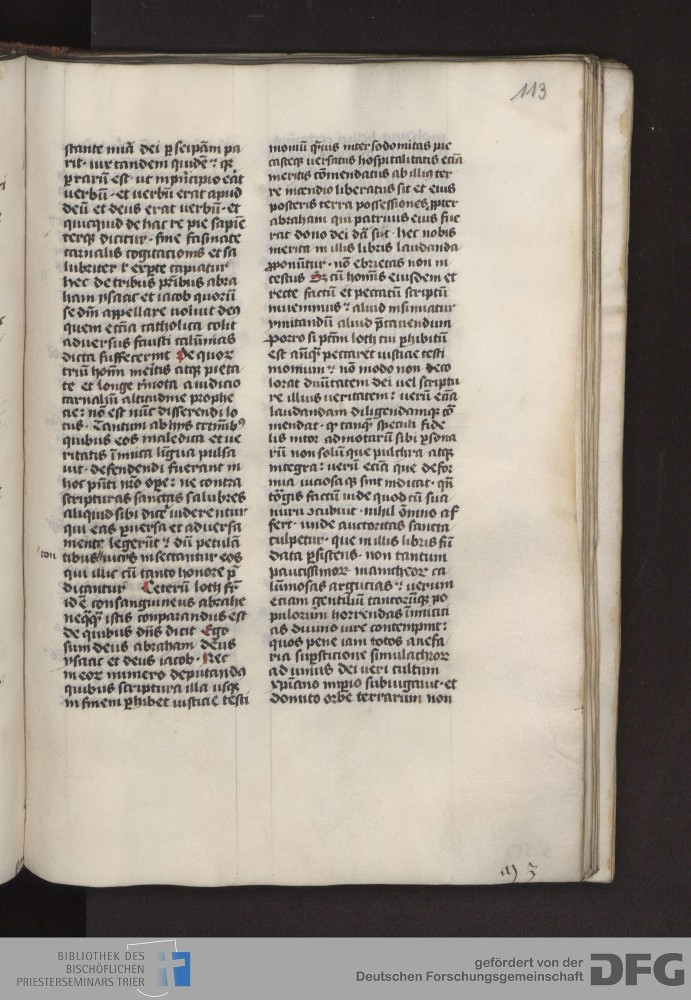 113
stante mīa dei p seipām pa
rit · vix tandem quidē ꝛ qꝛ
p rarū est · ut in pͥncipio eāt
uerbū · et uerbū erat apud
deū et deus erat uerbū · et
quicquid de hac re pie sapiē
terqꝫ dicitur · sine fasmate
carnalis cogitacionis et sa
lubriter
hec de tribus pr̄ibus abra
ham ysaac et iacob quorū
se dm̄ appellare voluit deꝰ
quem ecc̄ia catholica colit
aduersus fausti calūnias
dicta suffecerint De quoꝝ
triū hoīm meritis atqꝫ pieta
te et longe rͤmota a iudicio
carnaliū altitudine prophe
cie : nō est nūc disserendi lo
cus · Tantum ab hiis crīnibꝰ
quibus eos maledica et ve
ritatis īmica lingua pulsa
uit · defendendi fuerant in
hoc pn̄ti nr̄o ope : ne contra
scripturas sanctas salubres
aliquid sibi dicͤ uiderentur
qui eas puersa et aduersa
mente legerūt ꝛ dū petulā
con tibus uicͥs insectantur eos
qui illic cū tanto honore p̄
dicantur Ceterū loth fr̄
id ē consanguineus abrahe
neqͣqͣ istis conparandus est
de quibus dn̄s dicit Ego
sum deus abraham deus
ysaac et deus iacob · Nec
in eoꝝ numero deputandꝰ
quibus scriptura illa usqꝫ
in finem phibet iusticie testi
moniū qͣuis inter sodomitas pie
casteqꝫ uersatus hospitalitatis ecā
meritis cōmendatus ab illiꝰ ter
re incendio liberatus sit et eius
posteris terra possessiones ꝓpter
abraham qui patruus eius fue
rat dono dei dā sīt · hec nobis
merita in illis libris laudanda
ꝓponūtur · nō ebrietas non in
cestus Sꝫ cū hoīnis eiusdem et
recte factū et peccatū scriptū
inuenimus ꝛ aliud insinuatur
ymitandū aliud p̄cauendum
Porro si pctm̄ loth cui phibitū
est anͣqͣ peccaret iusticie testi
monium ꝛ nō modo non deco
lorat diuītatem dei uel scriptu
re illius ueritatem : verū ecā
laudandam diligendamqꝫ cō
mendat · qꝛ tanqͣ speculi fide
lis nitor admotarū sibi psona
rū non solū que pulchra atqꝫ
integra : uerū ecā que defor
mia uiciosaqꝫ sint indicat · qn̄
tōgis factū iude quod cū sua
nuru ɔcubuit · nihil ōmino af
fert · unde auctoritas sancta
culpetur · que in illis libris fū
data psistens · non tantum
paucissimoꝝ manicheoꝝ ca
lūniosas argucias ꝛ uerum
etiam gentiliū tantorūqꝫ po
pulorum horrendas īmiciti
as diuino iure contempnit :
quos pene iam totos a nefa
ria supsticione simulachroꝝ
ad unius dei veri cultum
xpīano inpio subiugauit · et
domito orbe terrarum non
BIBLIOTHEK DES
BISCHÖFLICHEN
PRIESTERSEMINARS TRIER
gefördert von der
Deutschen Forschungsgemeinschaft
DFG